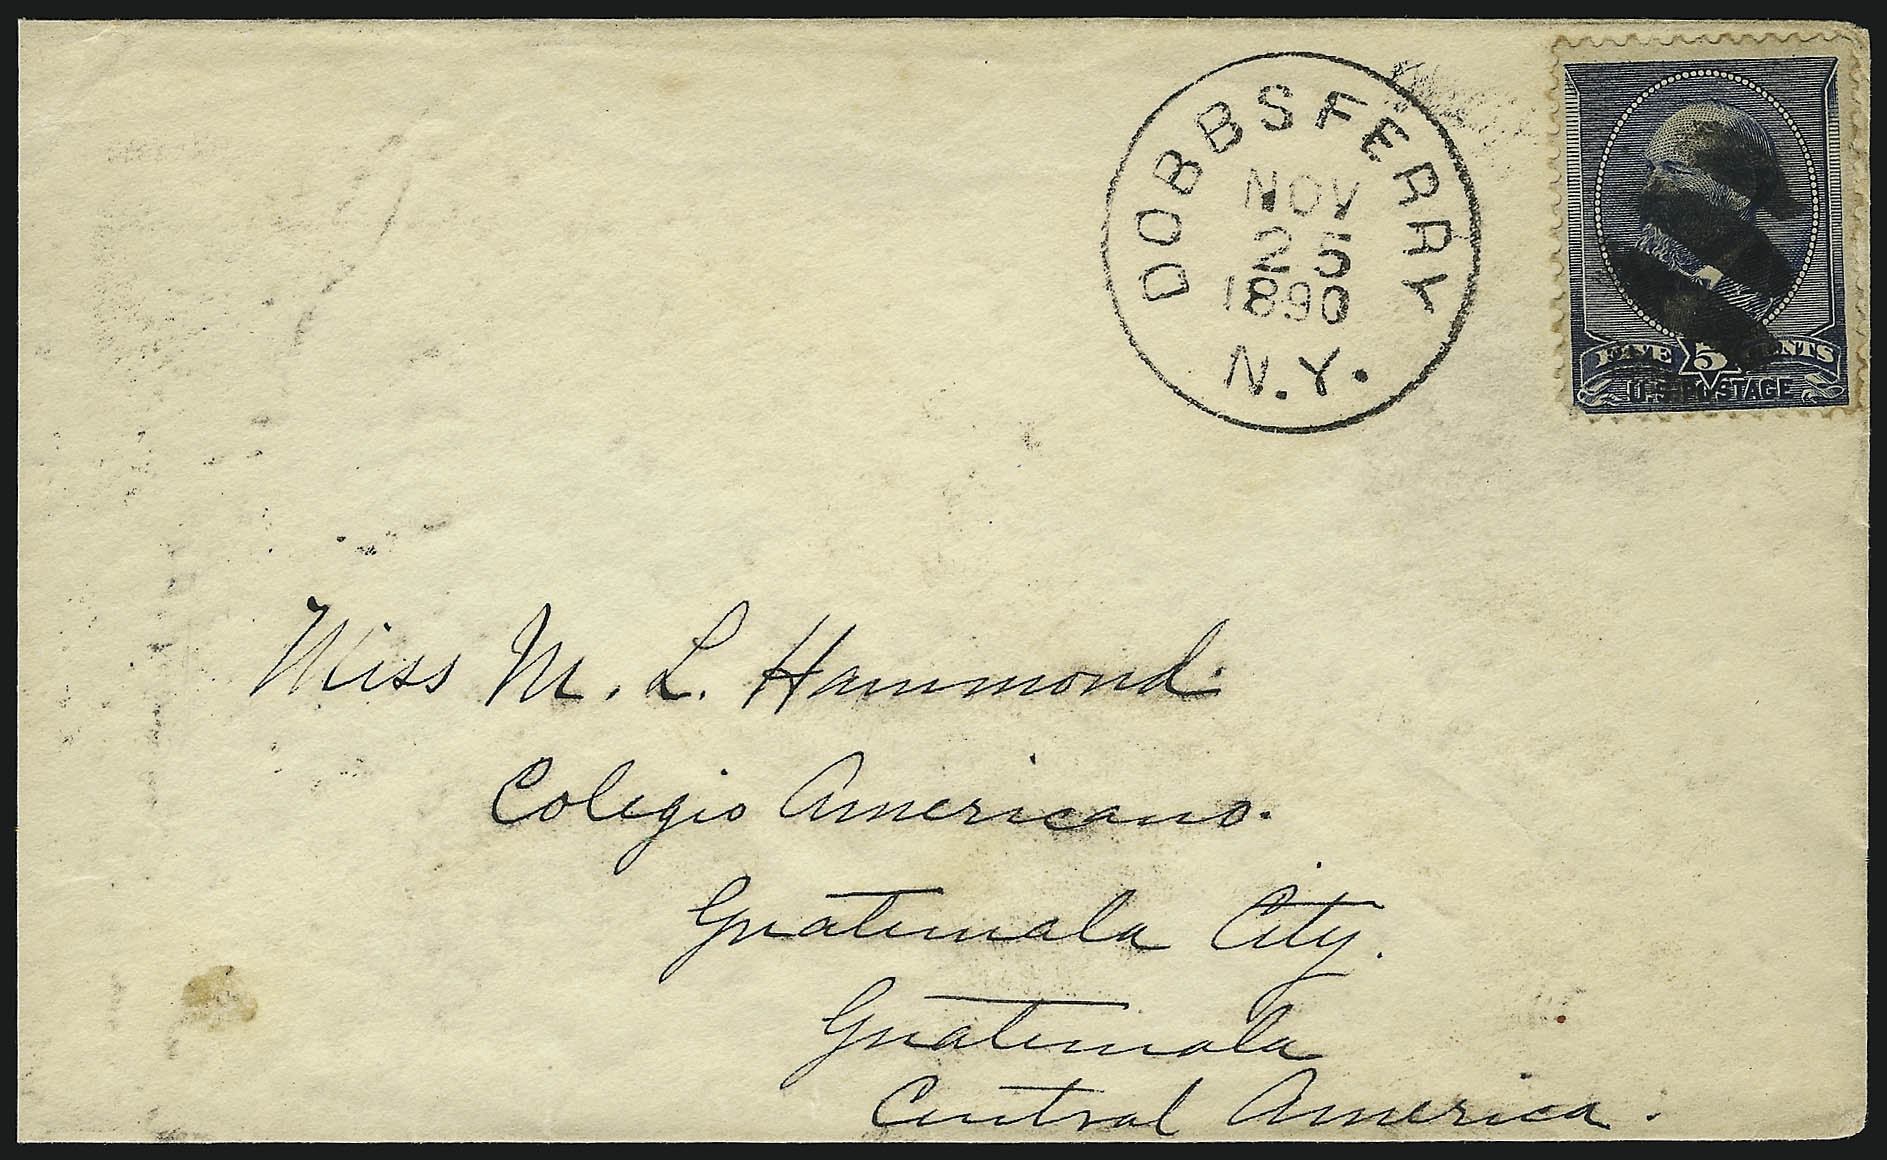 DOBBS FERRY
NOV
25
1890
N.Y.
FIVE 5 CENTS
U.S. POSTAGE
Miss M. L. Hammond.
Colegio Americano.
Guatemala City.
Guatemala
Central America.